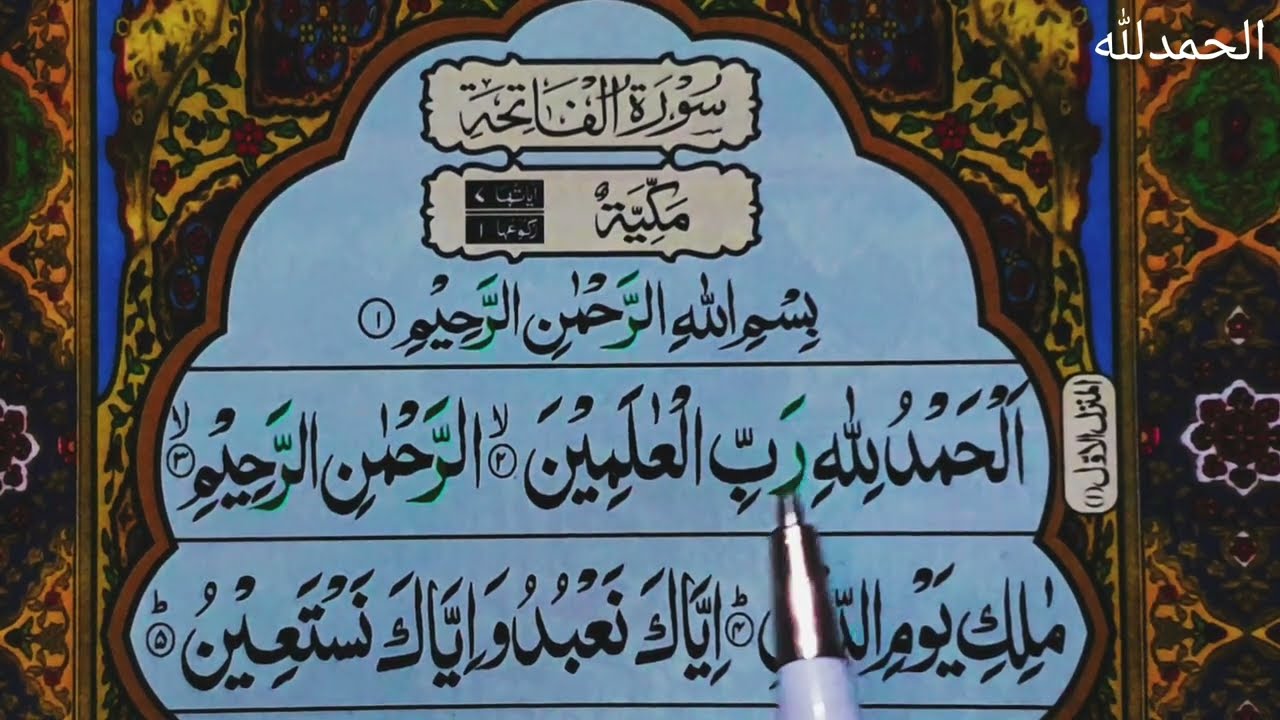 الحمدلله
سُوْرَةُ الْفَاتِحَةِ
مَكِّيَّةٌ
اٰیاتها ٧
رکوعها ١
بِسْمِ اللهِ الرَّحْمٰنِ الرَّحِيْمِ ١
اَلْحَمْدُ لِلّٰهِ رَبِّ الْعٰلَمِيْنَ ۙ ٢ الرَّحْمٰنِ الرَّحِيْمِ ۙ ٣
مٰلِكِ يَوْمِ ؕ ۴ اِيَّاكَ نَعْبُدُ وَ اِيَّاكَ نَسْتَعِيْنُ ؕ ۵
المنزل الاول (١)